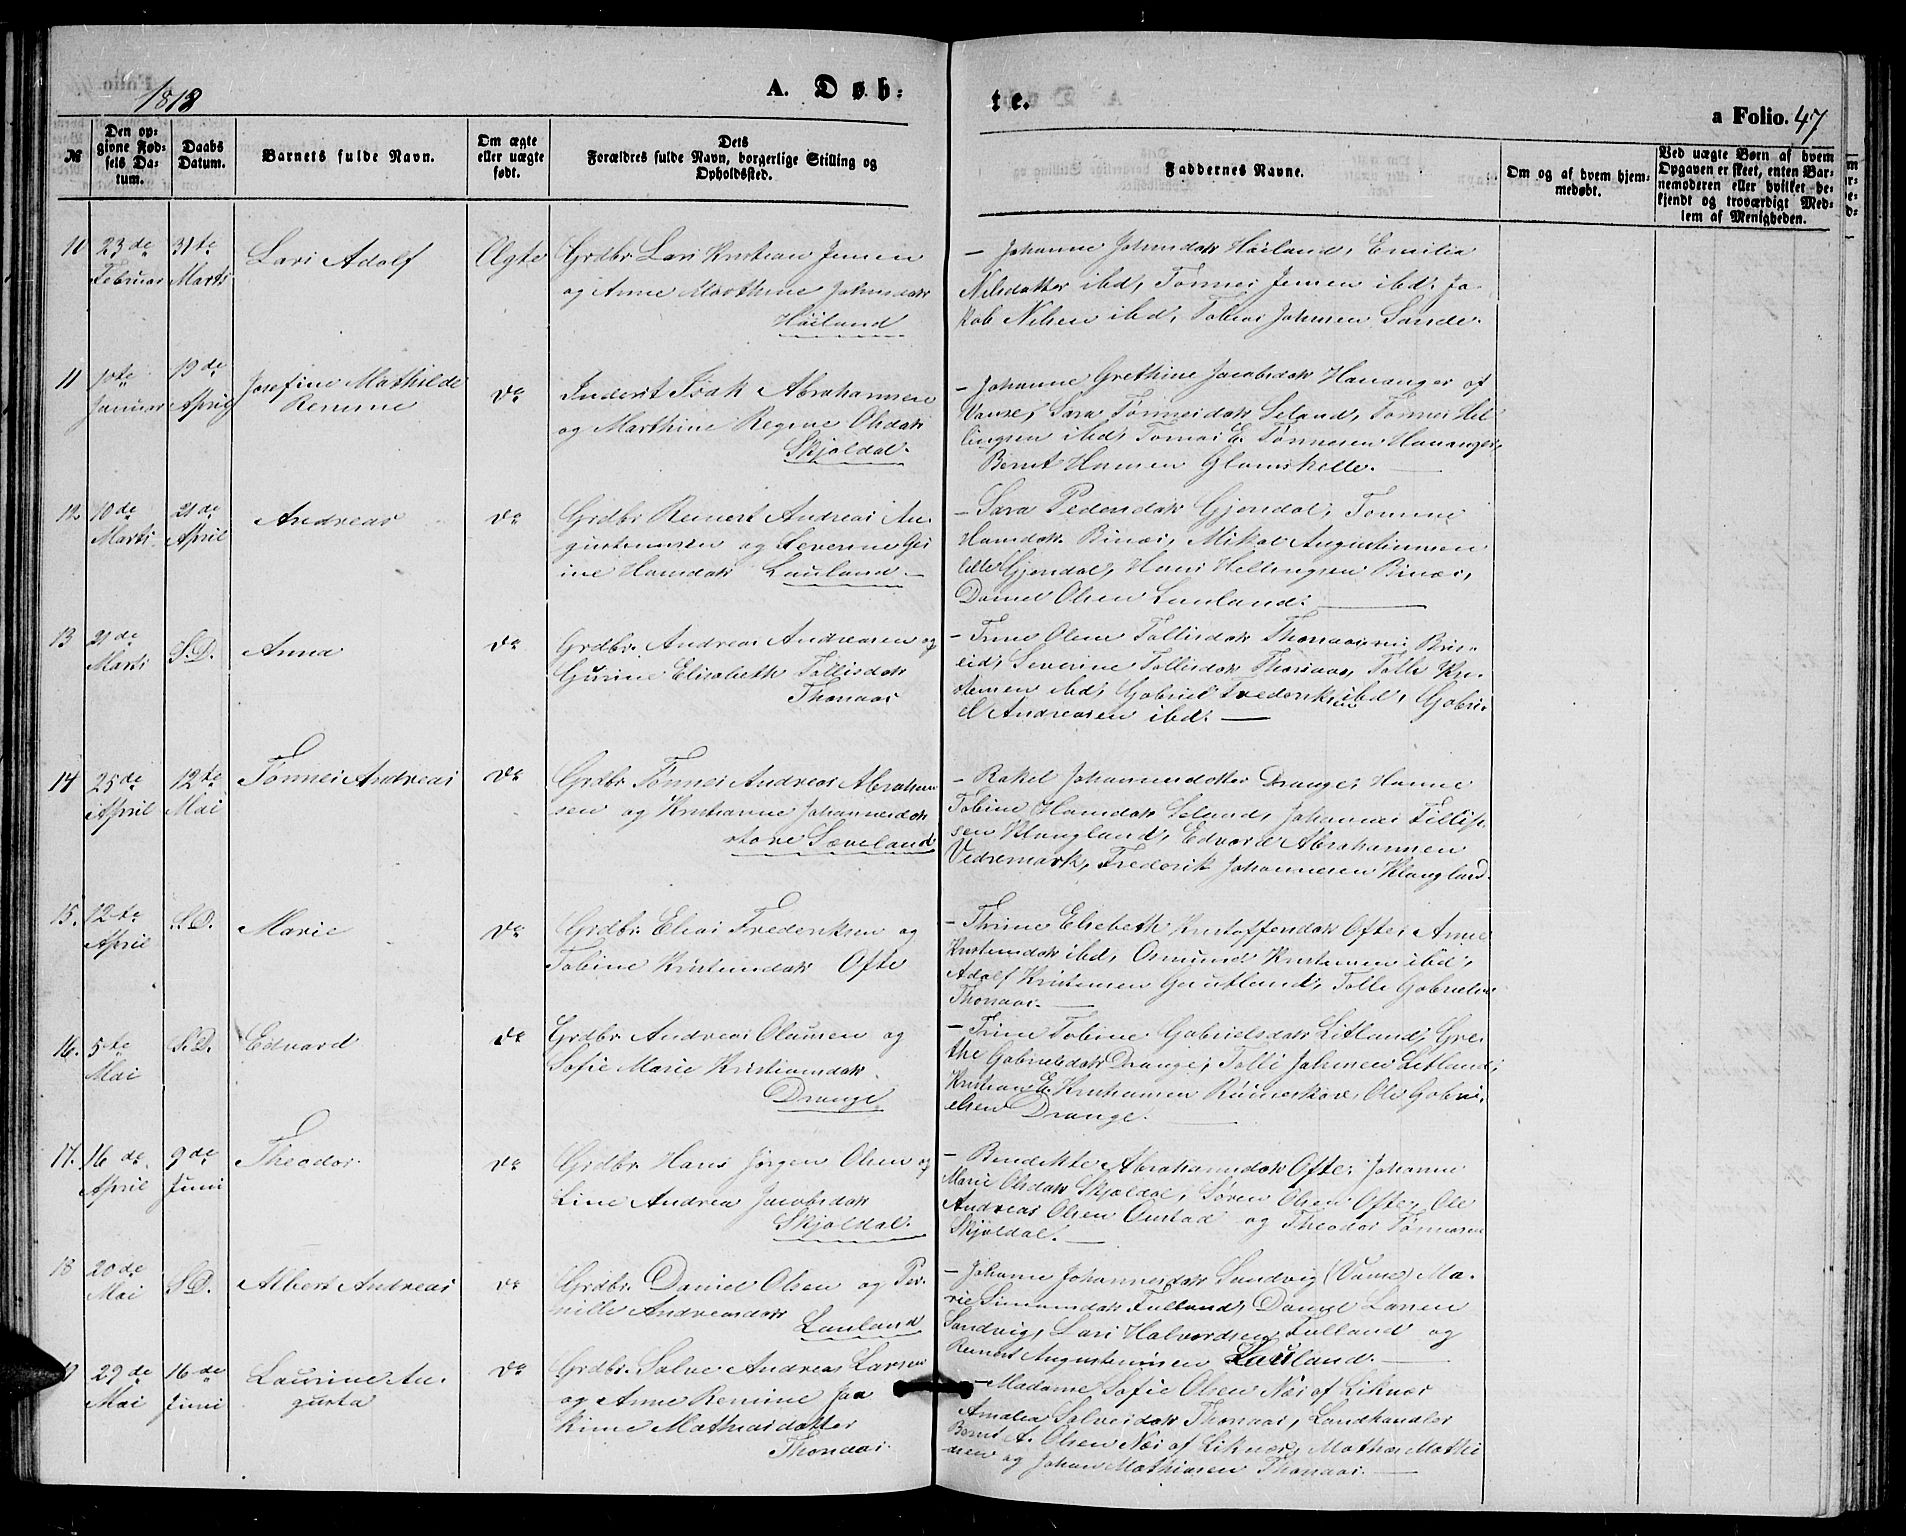 1878
A. Døb-
te.
a Folio. 47
№
Den op-
givne Fød-
sels Da-
tum.
Daabs
Datum.
Barnets fulde Navn.
Om ægte
eller uægte
født.
Dets
Forældres fulde Navn, borgerlige Stilling og
Opholdssted.
Faddernes Navne.
Om og af hvem hjem-
medøbt.
Ved uægte Børn af hvem
Opgaven er skeet, enten Bar-
nemoderen eller hvilket be-
kjendt og troværdigt Med-
lem af Menigheden.
10
23de
Februar
31te
Marts
Lars Adolf
Ægte
Grdbr Lars Kristian Jensen
og Anne Marthine Johnsdatr
Høiland
- Johanne Johnsdatr Høiland, Emilie
Nilsdatter ibd, Tønnes Jensen ibd, Ja-
kob Nilsen ibd, Tobias Johnsen Sande.
11
1ste
Januar
19de
April
Josefine Mathilde
Remine
do
Inderst Isak Abrahamsen
og Marthine Regine Olsdatr
Skjoldal.
- Johanne Grethine Jacobsdatr Hananger af
Vanse, Sara Tønnesdatr Seland, Tønnes Sal-
lingsen ibd, Tomas E. Tønnesen Hananger,
Bernt Hansen Glomshelle.
12
10de
Marts
21de
April
Andreas
do
Grdbr Reinert Andreas Au-
gustinussen og Severine Ges
ine Hansdatr Lauland
- Sara Pedersdatr Gjendal, Tomine
Hansdatr Binæs, Mikal Augustinusen
lille Gjendal, Hans Hellingsen Binæs,
Daniel Olsen Lauland.
13
21de
Marts
S.D.
Anna
do
Grdbr. Andreas Andreasen og
Gurine Elisabeth Tollisdatr
Thonaas
- Trine Olene Tollisdatr Thonaas,
eid, Severine Tollisdatr Thonaas, Tolle Kri-
stensen ibd, Gabriel Frederiksen ibd, Gabri-
el Andreasen ibd.
14
25de
April
12te
Mai
Tønnes Andreas
do
Grdbr. Tønnes Andreas Abraham
sen og Kristianne Johannesdatr
store Sæveland
- Rakel Johannesdatter Drange, Hanne
Tobine Hansdatr Seland, Johannes Tillif-
sen Klungland, Edvard Abrahamsen
Vedremark, Frederik Johannesen Klungland.
15.
12te
April
S.D.
Marie
do
Grdbr. Elias Frederiksen og
Tobine Kristensdatr Ofte
- Thrine Elsebeth Kristoffersdatr Ofte, Anne
Kristensdatr ibd, Osmund Kristensen ibd,
Adolf Kristensen Gautland, Tolle Gabrielsen
Thonaas.
16.
5te
Mai
S.D.
Edvard
do
Grdbr Andreas Olausen og
Sofie Marie Kristiansdatr
Drange
- Trine Tobine Gabrielsdatr Litland, Gre-
the Gabrielsdatr Drange, Tolli Johnsen Litland,
Kristian E. Kristiansen Rømeskov, Ole Gabri-
elsen Drange.
17.
16de
April
9de
Juni
Theodor.
do
Grdbr. Hans Jørgen Olsen og
Line Andrea Jacobsdatr
Skjoldal.
- Bendikte Abrahamsdatr Ofte, Johanne
Marie Olsdatr Skjoldal, Søren Olsen Ofte, Ole
Andreas Olsen Omstad og Theodor Tønnesen
Skjoldal.
18
20de
Mai
S.D.
Albert Andreas
do
Grdbr. Daniel Olsen og Per-
nille Andreasdatr
Lauland
- Johanne Johannesdatr Sandvig (Vanse) Ma-
rie Simonsdatr Tulland, Daniel Larsen
Sandvig, Lars Halvordsen Tulland og
Reinert Augustinusen Lauland.
19
29de
Mai
16de
Juni
Laurine Au-
gusta
do
Grdbr. Salve Andreas Larsen
og Anne Remine Joa
kime Mathiasdatter
Thonaas.
- Madame Sofie Olsen Næs af Liknæs
Amalia Salvesdatr Thonaas, Landhandler
Bernt A. Olsen Næs af Liknæs, Mathias Mathi
asen og Johan Mathiasen Thonaas.